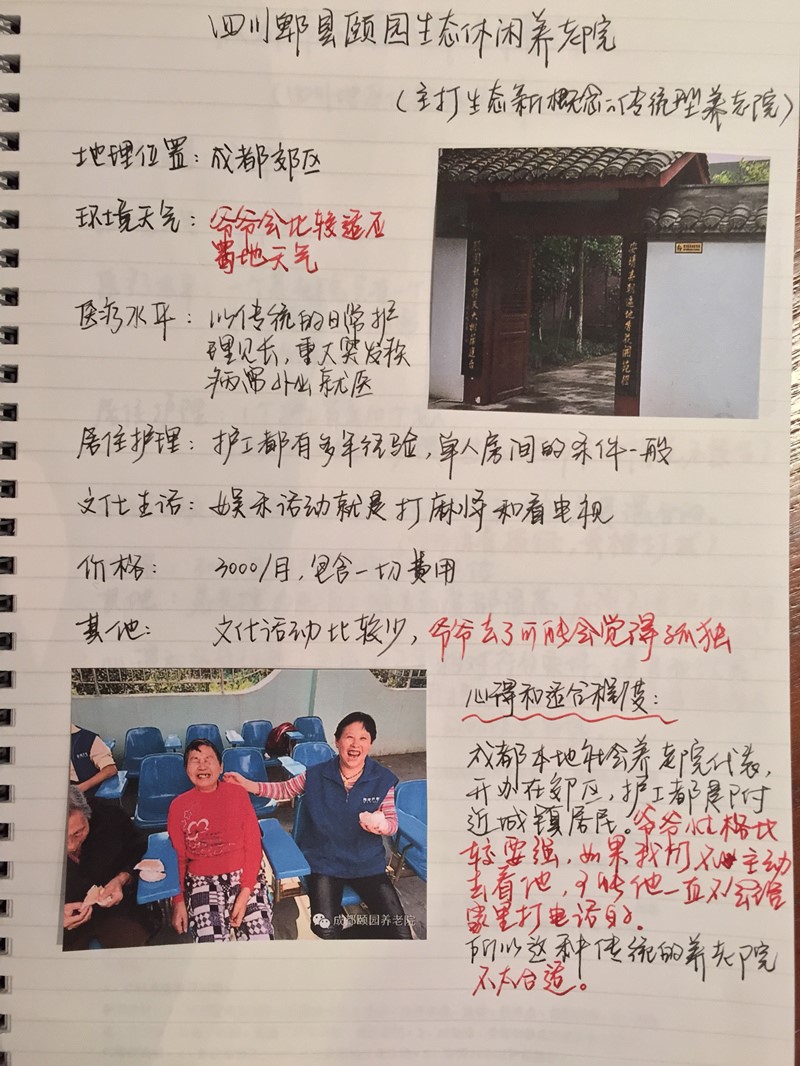 四川郫县颐园生态休闲养老院
(主打生态新概念の传统型养老院)
地理位置：成都郊区
环境天气：爷爷会比较适应
蜀地天气
医疗水平：以传统的日常护
理见长，重大突发疾
病需外出就医
居住护理：护工都有多年经验，单人房间的条件一般
文化生活：娱乐活动就是打麻将和看电视
价格：3000/月，包含一切费用
其他：文化活动比较少，爷爷去了可能会觉得孤独
心得和适合程度：
成都本地社会养老院代表，
开办在郊区，护工都是附
近城镇居民。爷爷性格比
较要强，如果我们不主动
去看他，可能他一直不会给
家里打电话的。
所以这种传统的养老院
不太合适。
成都颐园养老院